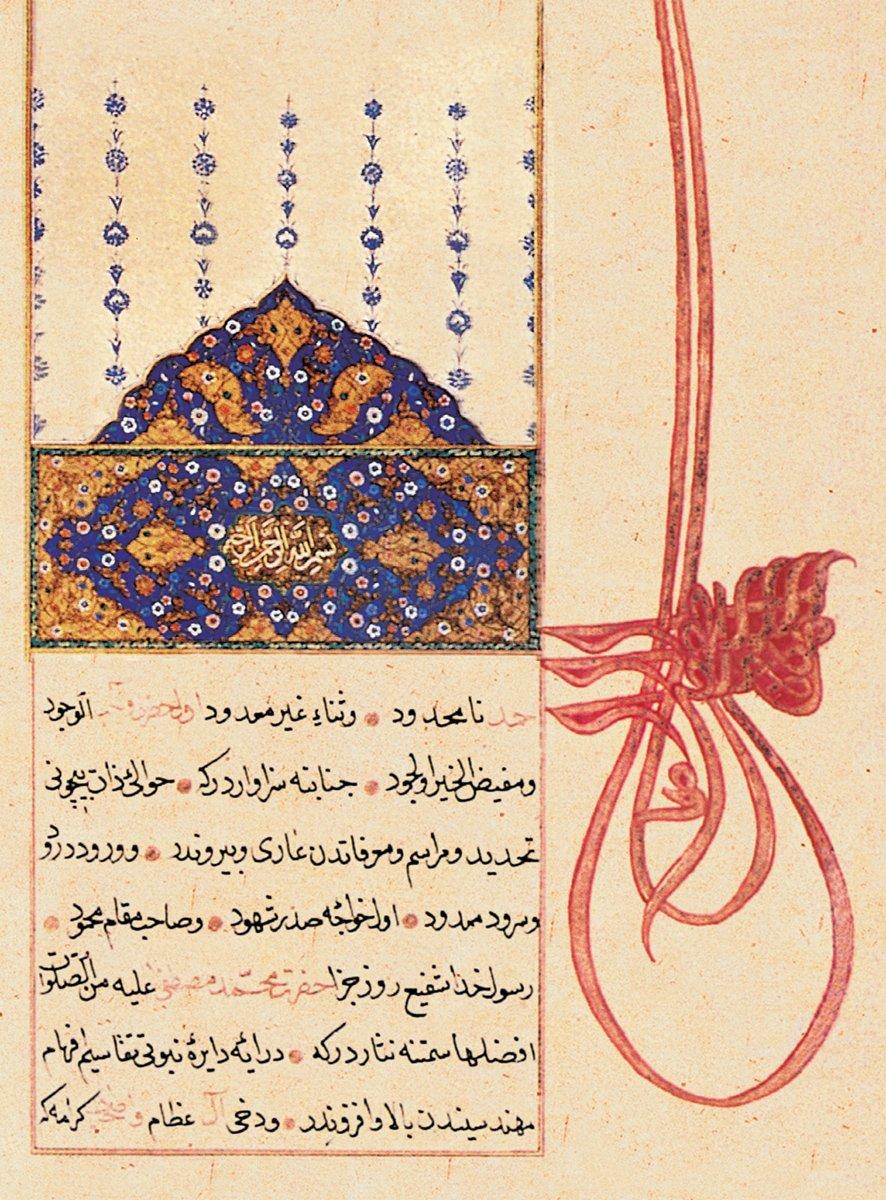 بسم الله الرحمن الرحيم
حمد نامحدود وثناء غير معدود اول حضرت الوجود
ومفيض الخير والجود جنابنه سزاواردركه حوالئ ذات بيچونى
تحديد ومراسم ومعرفاتدن عارى وبيروندر ودرود
وسرود ممدود اول خواجهٔ صدر شهود وصاحب مقام محمود
رسول خدا شفيع روز جزا حضرت محمد مصطفى عليه من الصلوات
افضلها سمتنه نثاردركه درايهٔ دايرهٔ نبوتى تقاسيم افهام
مهندسيندن بالا وافزوندر ودخى آل عظام واصحاب كرامه كه